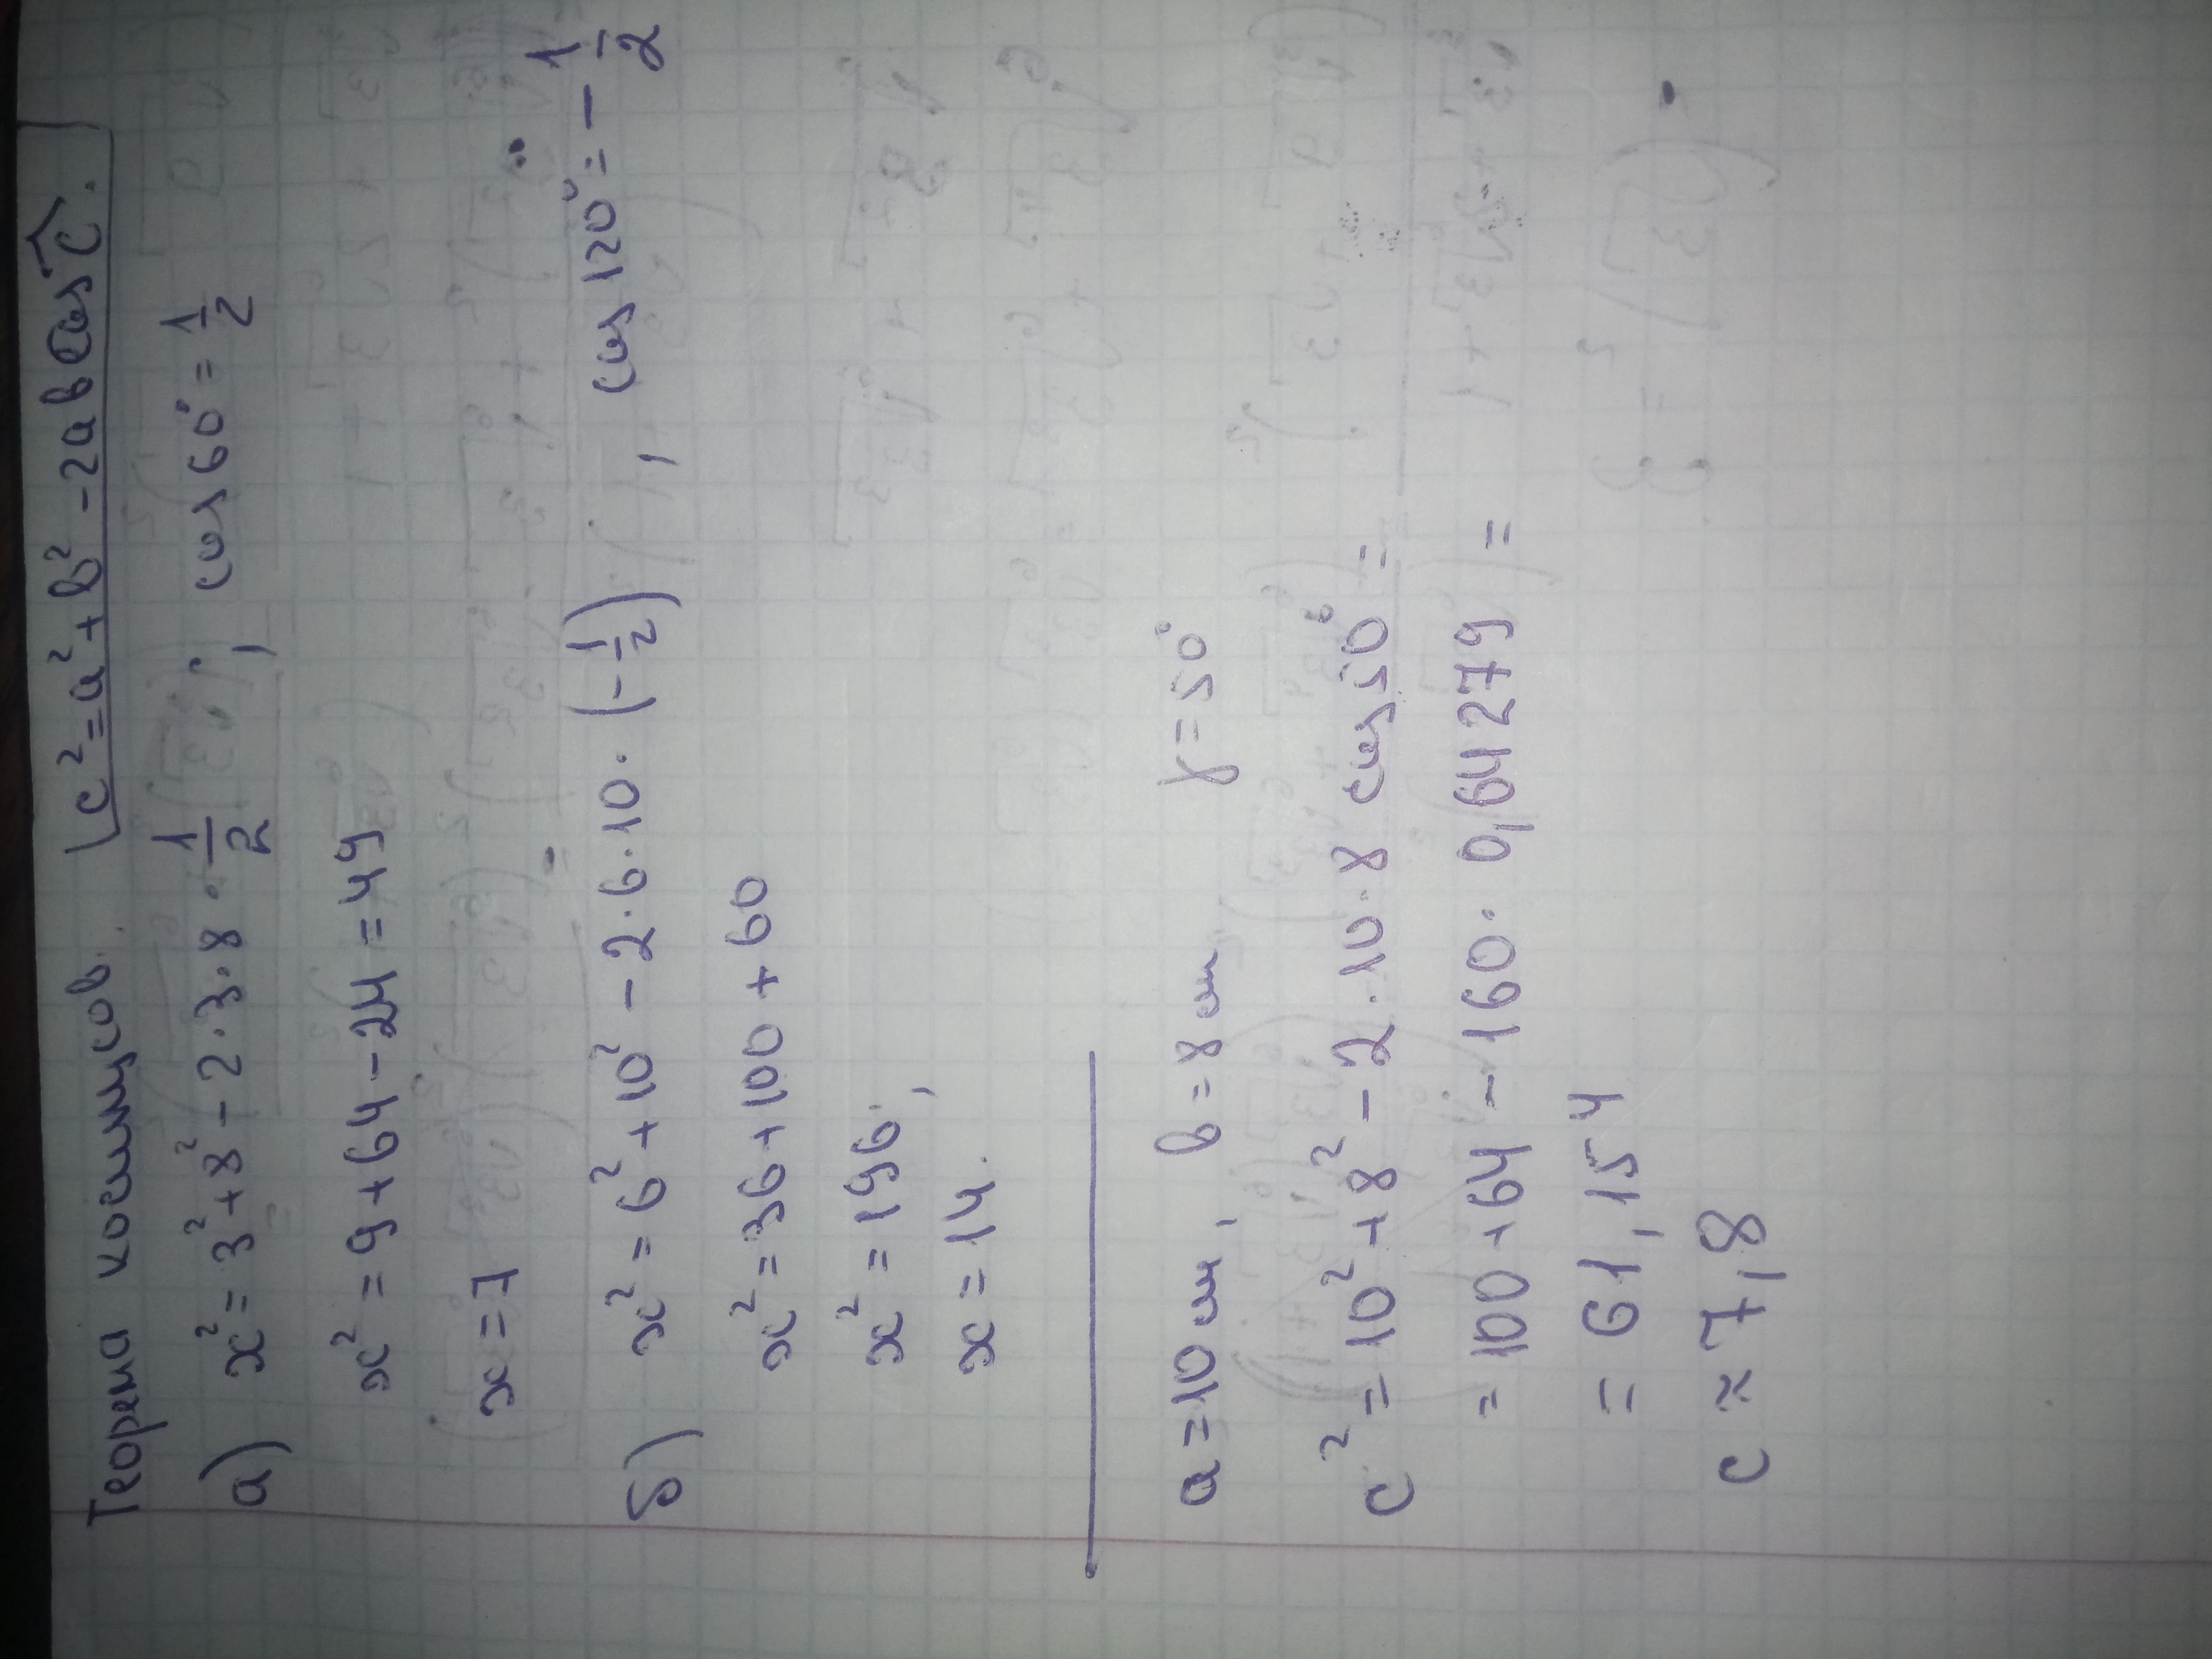 Теорема косинусов. c² = a² + b² - 2ab cos Ĉ.
а) x² = 3² + 8² - 2·3·8·1/2, cos 60° = 1/2
x² = 9 + 64 - 24 = 49
x = 7
б) x² = 6² + 10² - 2·6·10·(-1/2), cos 120° = -1/2
x² = 36 + 100 + 60
x² = 196,
x = 14.
a = 10 см, b = 8 см γ = 50°
c² = 10² + 8² - 2·10·8 cos 50° =
= 100 + 64 - 160·0,64279 =
= 61,154
c ≈ 7,8